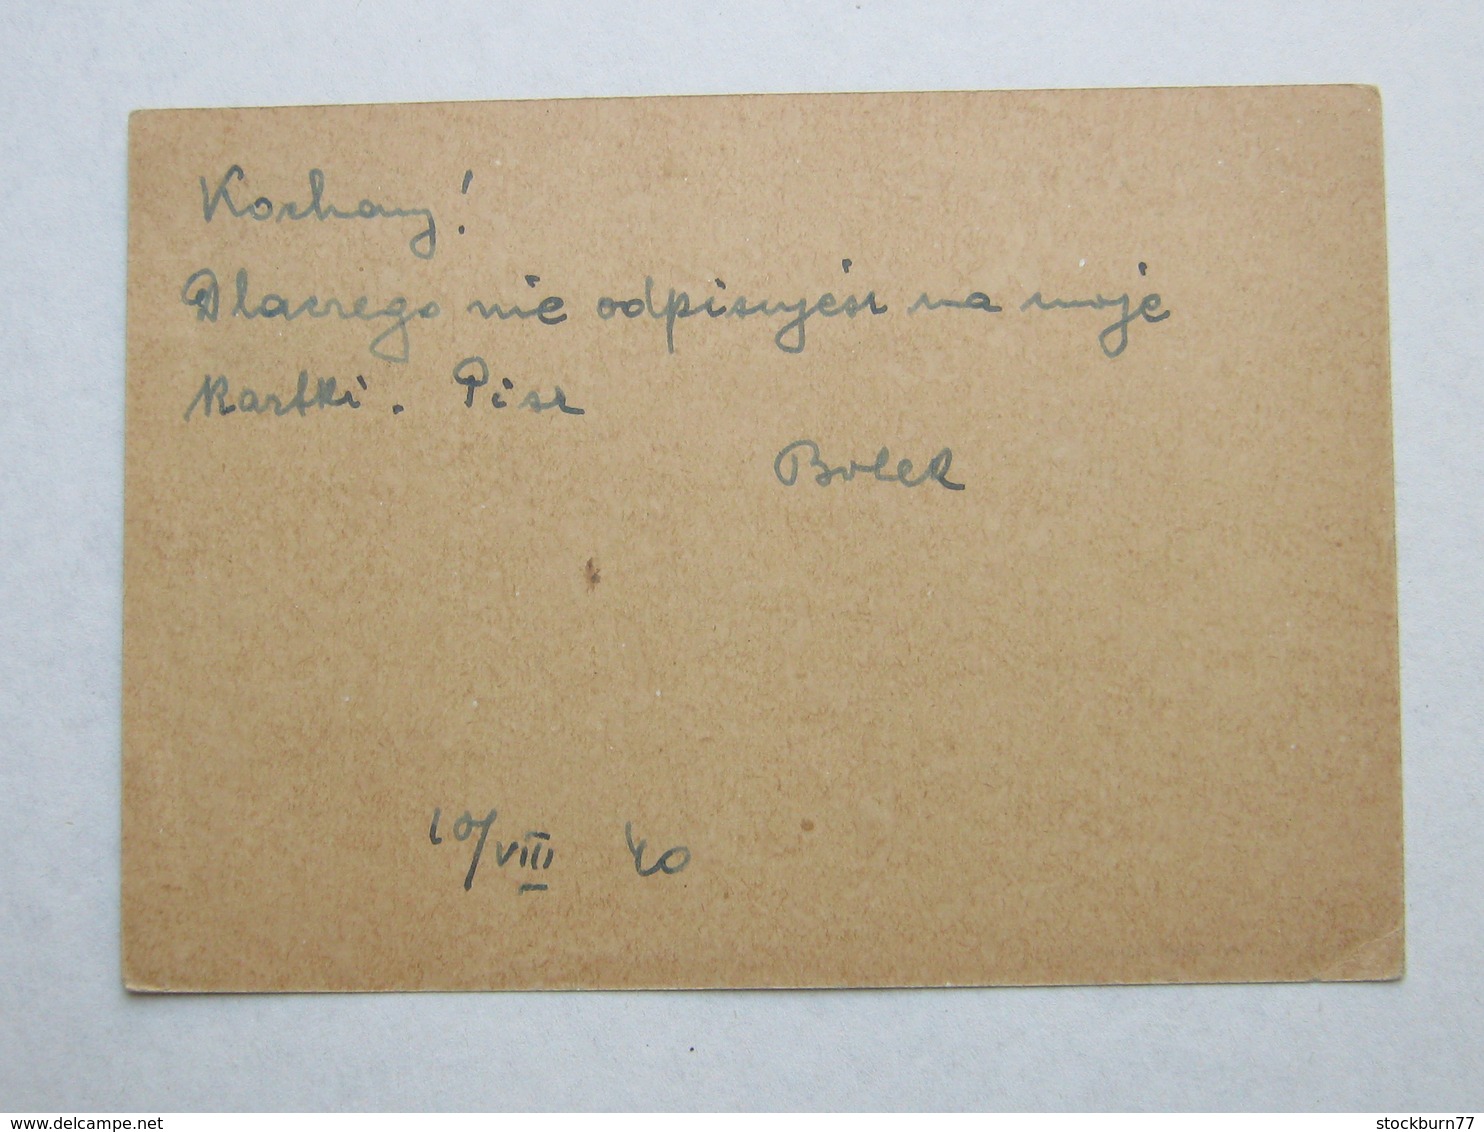 Kochany!
Dlaczego nie odpisujesz na moje
kartki. Pisz
Bolek
10/VIII 40
© www.delcampe.net
stockburn77